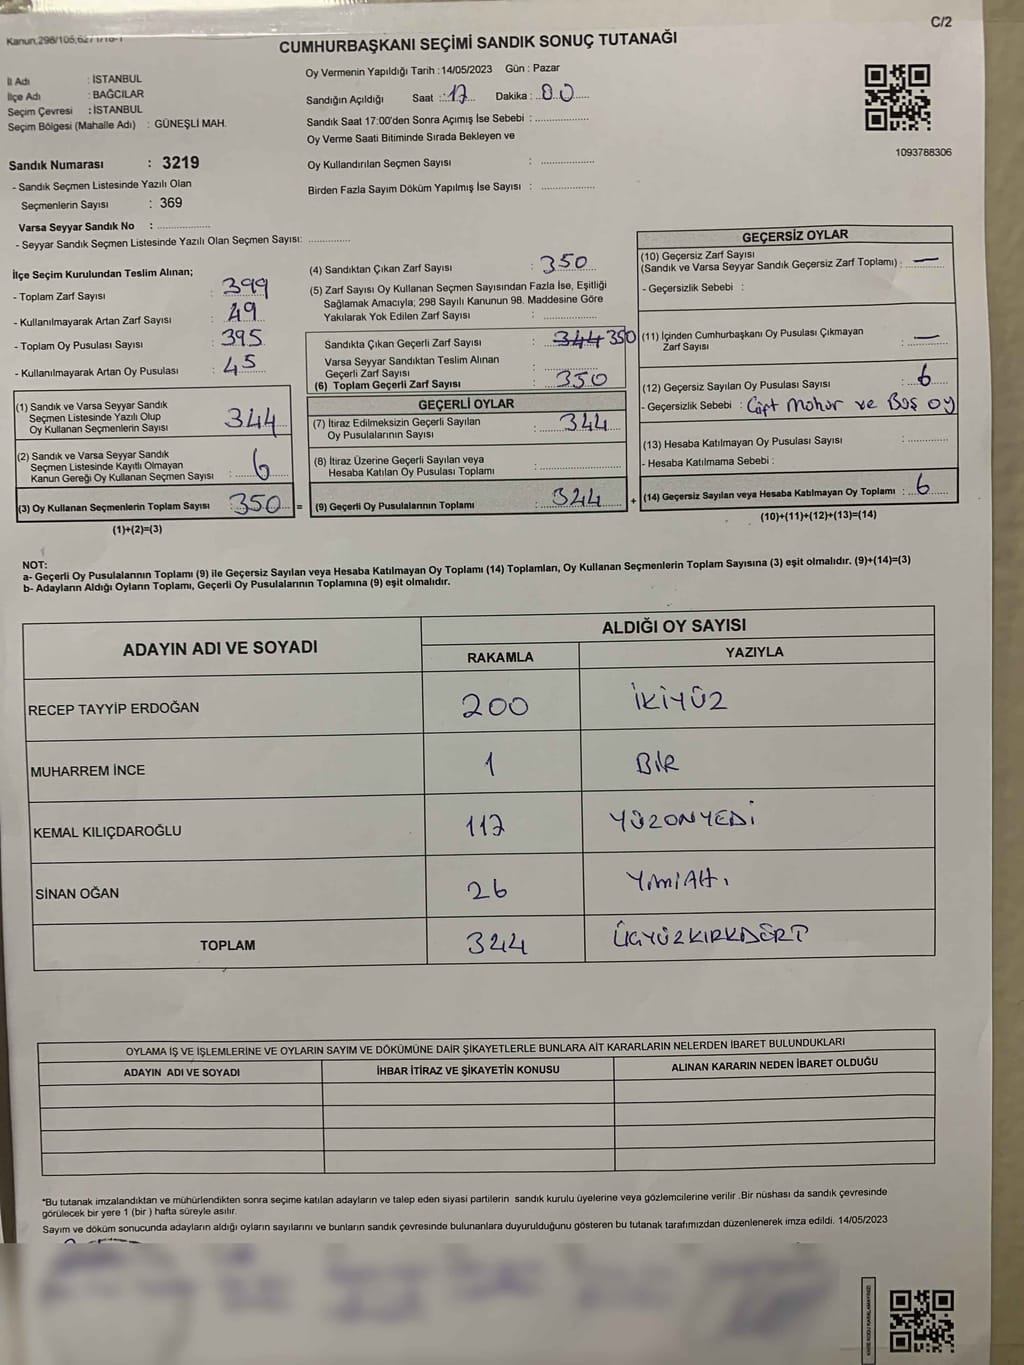 C/2
CUMHURBAŞKANI SEÇİMİ SANDIK SONUÇ TUTANAĞI
İl Adı : İSTANBUL
İlçe Adı : BAĞCILAR
Seçim Çevresi : İSTANBUL
Seçim Bölgesi (Mahalle Adı) : GÜNEŞLİ MAH.
Sandık Numarası : 3219
- Sandık Seçmen Listesinde Yazılı Olan
Seçmenlerin Sayısı : 369
Varsa Seyyar Sandık No : ................
- Seyyar Sandık Seçmen Listesinde Yazılı Olan Seçmen Sayısı: .............
Oy Vermenin Yapıldığı Tarih :14/05/2023 Gün : Pazar
Sandığın Açıldığı Saat : 17 Dakika : 00
Sandık Saat 17:00'den Sonra Açımış İse Sebebi : ................
Oy Verme Saati Bitiminde Sırada Bekleyen ve
Oy Kullandırılan Seçmen Sayısı : ................
Birden Fazla Sayım Döküm Yapılmış İse Sayısı : ................
1093788306
İlçe Seçim Kurulundan Teslim Alınan;
- Toplam Zarf Sayısı : 399
- Kullanılmayarak Artan Zarf Sayısı : 49
- Toplam Oy Pusulası Sayısı : 395
- Kullanılmayarak Artan Oy Pusulası : 45
(1) Sandık ve Varsa Seyyar Sandık
Seçmen Listesinde Yazılı Olup
Oy Kullanan Seçmenlerin Sayısı 344
(2) Sandık ve Varsa Seyyar Sandık
Seçmen Listesinde Kayıtlı Olmayan
Kanun Gereği Oy Kullanan Seçmen Sayısı : 6
(3) Oy Kullanan Seçmenlerin Toplam Sayısı : 350 =
(1)+(2)=(3)
(4) Sandıktan Çıkan Zarf Sayısı : 350
(5) Zarf Sayısı Oy Kullanan Seçmen Sayısından Fazla İse, Eşitliği
Sağlamak Amacıyla; 298 Sayılı Kanunun 98. Maddesine Göre
Yakılarak Yok Edilen Zarf Sayısı : ................
Sandıkta Çıkan Geçerli Zarf Sayısı : 344 350
Varsa Seyyar Sandıktan Teslim Alınan
Geçerli Zarf Sayısı : ................
(6) Toplam Geçerli Zarf Sayısı : 350
GEÇERLİ OYLAR
(7) İtiraz Edilmeksizin Geçerli Sayılan
Oy Pusulalarının Sayısı : 344
(8) İtiraz Üzerine Geçerli Sayılan veya
Hesaba Katılan Oy Pusulası Toplamı : ................
(9) Geçerli Oy Pusulalarının Toplamı : 344 +
GEÇERSİZ OYLAR
(10) Geçersiz Zarf Sayısı
(Sandık ve Varsa Seyyar Sandık Geçersiz Zarf Toplamı) : —
- Geçersizlik Sebebi :
(11) İçinden Cumhurbaşkanı Oy Pusulası Çıkmayan
Zarf Sayısı : —
(12) Geçersiz Sayılan Oy Pusulası Sayısı : 6
- Geçersizlik Sebebi : Çift Mohur ve Boş oy
(13) Hesaba Katılmayan Oy Pusulası Sayısı : ................
- Hesaba Katılmama Sebebi :
(14) Geçersiz Sayılan veya Hesaba Katılmayan Oy Toplamı : 6
(10)+(11)+(12)+(13)=(14)
NOT:
a- Geçerli Oy Pusulalarının Toplamı (9) ile Geçersiz Sayılan veya Hesaba Katılmayan Oy Toplamı (14) Toplamları, Oy Kullanan Seçmenlerin Toplam Sayısına (3) eşit olmalıdır. (9)+(14)=(3)
b- Adayların Aldığı Oyların Toplamı, Geçerli Oy Pusulalarının Toplamına (9) eşit olmalıdır.
ADAYIN ADI VE SOYADI ALDIĞI OY SAYISI
RAKAMLA YAZIYLA
RECEP TAYYİP ERDOĞAN 200 İKİYÜZ
MUHARREM İNCE 1 BİR
KEMAL KILIÇDAROĞLU 117 YÜZONYEDİ
SİNAN OĞAN 26
TOPLAM 344 ÜÇYÜZKIRKDÖRT
OYLAMA İŞ VE İŞLEMLERİNE VE OYLARIN SAYIM VE DÖKÜMÜNE DAİR ŞİKAYETLERLE BUNLARA AİT KARARLARIN NELERDEN İBARET BULUNDUKLARI
ADAYIN ADI VE SOYADI İHBAR İTİRAZ VE ŞİKAYETİN KONUSU ALINAN KARARIN NEDEN İBARET OLDUĞU
*Bu tutanak imzalandıktan ve mühürlendikten sonra seçime katılan adayların ve talep eden siyasi partilerin sandık kurulu üyelerine veya gözlemcilerine verilir .Bir nüshası da sandık çevresinde
görülecek bir yere 1 (bir ) hafta süreyle asılır.
Sayım ve döküm sonucunda adayların aldığı oyların sayılarını ve bunların sandık çevresinde bulunanlara duyurulduğunu gösteren bu tutanak tarafımızdan düzenlenerek imza edildi. 14/05/2023